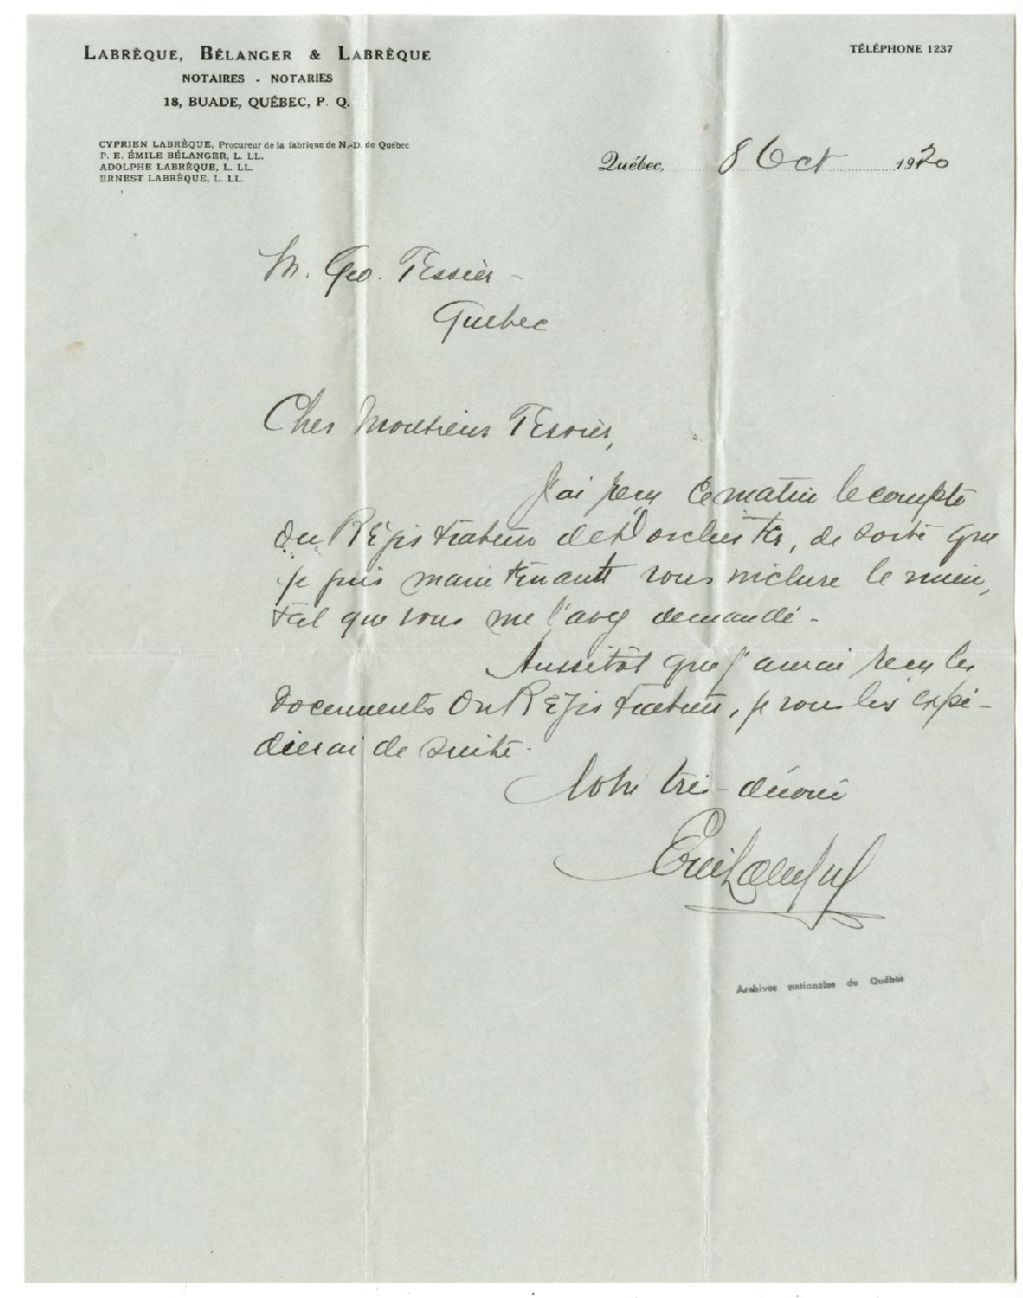 LABRÈQUE, BÉLANGER & LABRÈQUE
NOTAIRES - NOTARIES
18, BUADE, QUÉBEC, P. Q.
TÉLÉPHONE 1237
CYPRIEN LABRÈQUE, Procureur de la fabrique de N.-D. de Québec
P. E. ÉMILE BÉLANGER, L. LL.
ADOLPHE LABRÈQUE, L. LL.
ERNEST LABRÈQUE, L. LL.
Québec, 8 Oct 1920
M. Geo. Tessier -
Quebec
Cher Monsieur Tessier,
J'ai reçu ce matin le compte
du Régistrateur de Dorchester, de sorte que
je puis maintenant vous inclure le mien,
tel que vous me l'avez demandé.
Aussitôt que j'aurai reçu les
documents du Régistrateur, je vous les expé-
dierai de suite.
Votre très-dévoué
Archives nationales du Québec